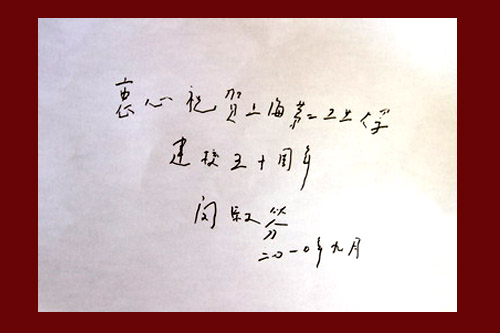 衷心祝贺上海第二工业大学
建校五十周年
闵虹芬
二〇一〇年九月